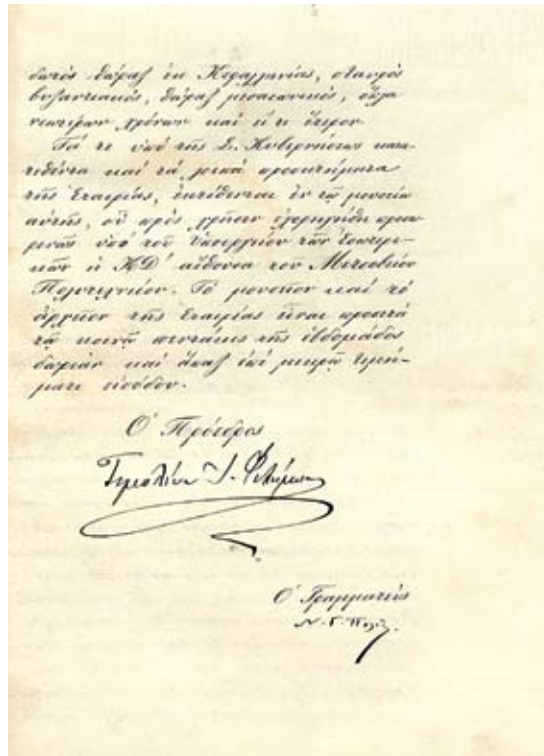 δωτὸς θώραξ ἐκ Κεφαλληνίας, σταυρὸς
βυζαντιακός, θώραξ μεσαιωνικός, ὅπλα
νεωτέρων χρόνων καὶ εἴ τι ἕτερον.
Τά τε ὑπὸ τῆς Σ. Κυβερνήσεως κατα-
τεθέντα καὶ τὰ λοιπὰ προσκτήματα
τῆς Ἑταιρίας, ἐκτίθενται ἐν τῷ μουσείῳ
αὐτῆς, οὗ πρὸς χρῆσιν ἐχορηγήθη
ὑπὸ τοῦ Ὑπουργείου τῶν Ἐσωτερι-
κῶν ἡ ΚΔ' αἴθουσα τοῦ Μετσοβίου
Πολυτεχνείου. Τὸ μουσεῖον καὶ τὸ
ἀρχεῖον τῆς Ἑταιρίας εἶναι προσιτὰ
τῷ κοινῷ πεντάκις τῆς ἑβδομάδος
δωρεὰν καὶ ἅπαξ ἐπὶ μικρῷ τιμή-
ματι εἰσόδου.
Ὁ Πρόεδρος
Τιμολέων Ι. Φιλήμων
Ὁ Γραμματεύς
Ν. Γ. Πολίτ